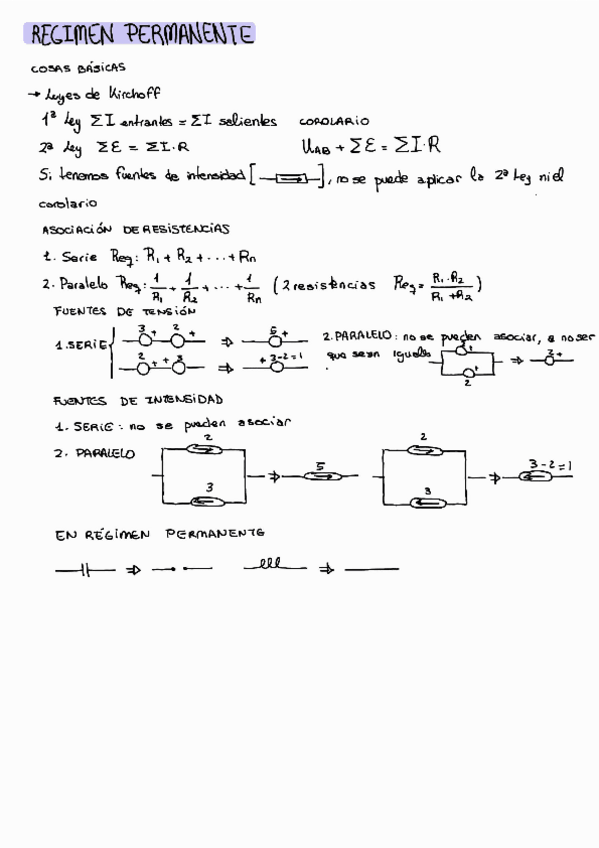 REGIMEN PERMANENTE
COSAS BÁSICAS
→ Leyes de Kirchoff
1ª Ley ΣI entrantes = ΣI salientes COROLARIO
2ª Ley Σε = ΣI·R U_AB + Σε = ΣI·R
Si tenemos fuentes de intensidad [ ], no se puede aplicar la 2ª Ley ni el
corolario
ASOCIACIÓN DE RESISTENCIAS
1. Serie Req: R₁ + R₂ + ... + Rn
2. Paralelo Req: 1/R₁ + 1/R₂ + ... + 1/Rn (2 resistencias Req = R₁·R₂/R₁+R₂)
FUENTES DE TENSIÓN
1. SERIE 3 + 2 + ⇒ 5 +
2 + + 3 ⇒ + 3-2=1
2. PARALELO: no se pueden asociar, a no ser
que sean iguales
2 + + 2 ⇒ 2 +
FUENTES DE INTENSIDAD
1. SERIE: no se pueden asociar
2. PARALELO
2 3 ⇒ 5
2 3 ⇒ 3-2=1
EN RÉGIMEN PERMANENTE